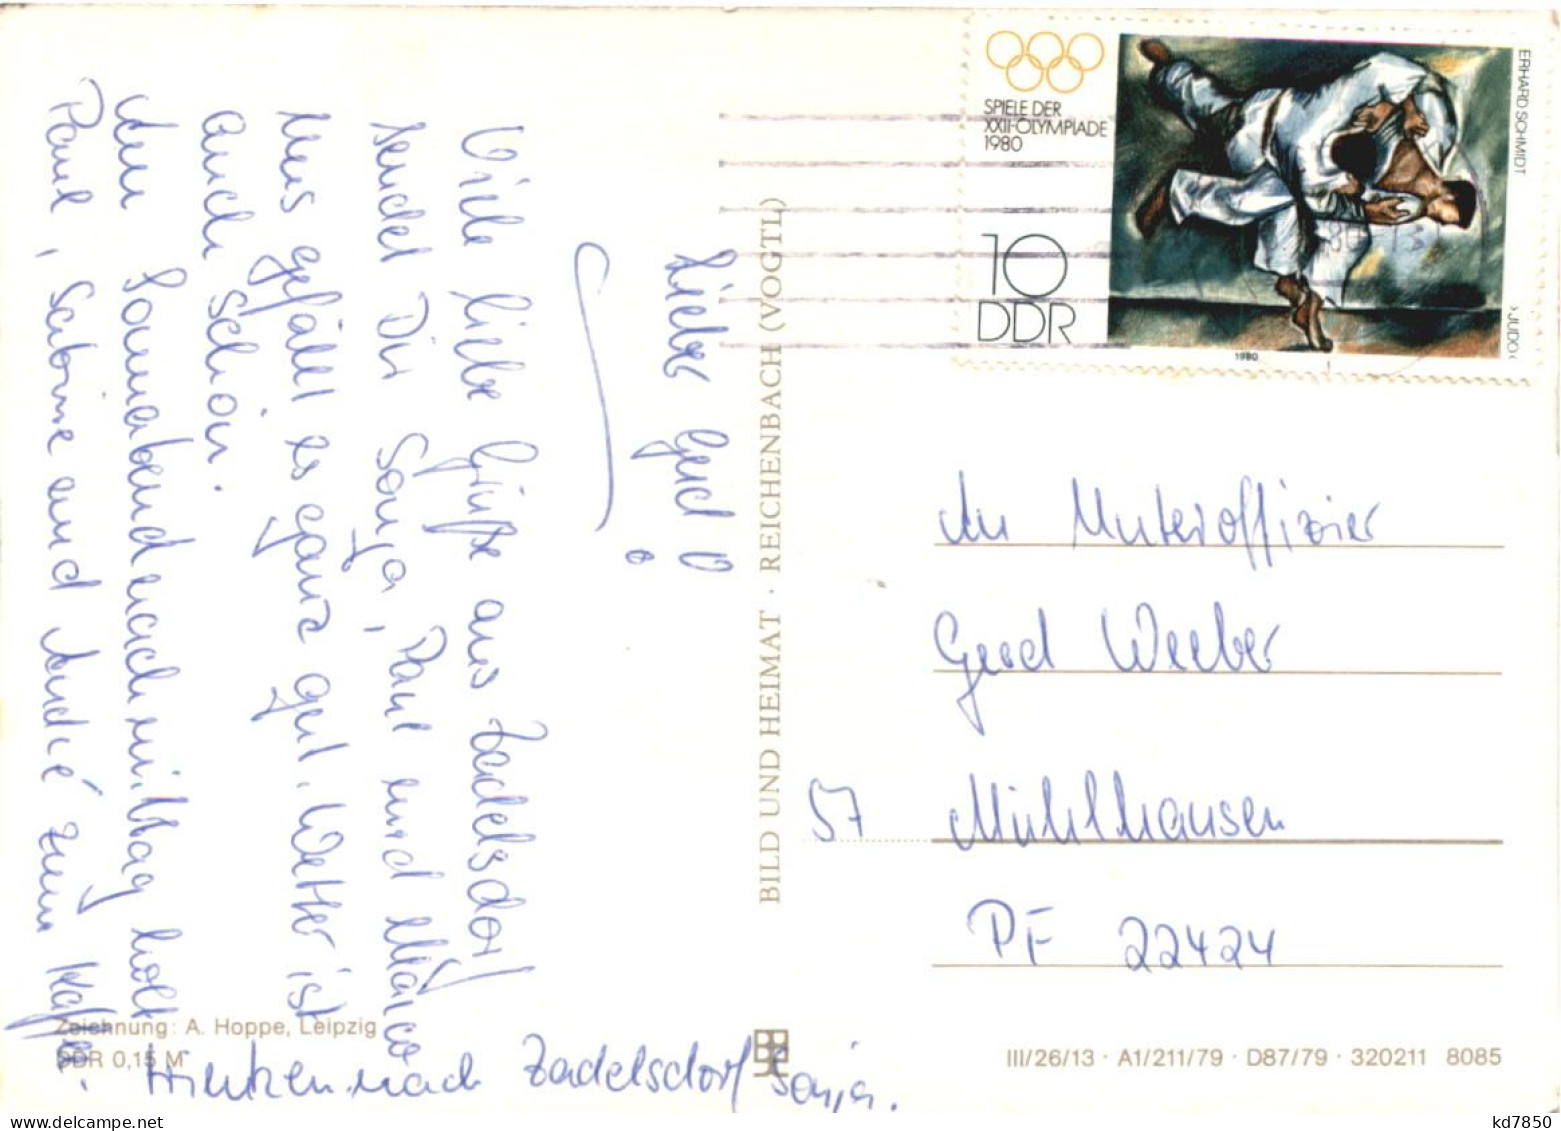 Lieber Gerd!
Viele liebe Grüße aus Zadelsdorf
sendet Dir Sonja, Paul und Marco
Uns gefällt es ganz gut. Wetter ist
auch schön.
Am Sonnabendnachmittag holt
Paul, Sabine und André zum Kaffee
nach Zadelsdorf Sonja.
BILD UND HEIMAT · REICHENBACH (VOGTL)
Zeichnung: A. Hoppe, Leipzig
DDR 0,15 M
SPIELE DER
XXII·OLYMPIADE
1980
10
DDR
ERHARD SCHMIDT
›JUDO‹
1980
An Unteroffizier
Gerd Weeber
57 Mühlhausen
PF 22424
III/26/13 · A1/211/79 · D87/79 · 320211 8085
kd7850